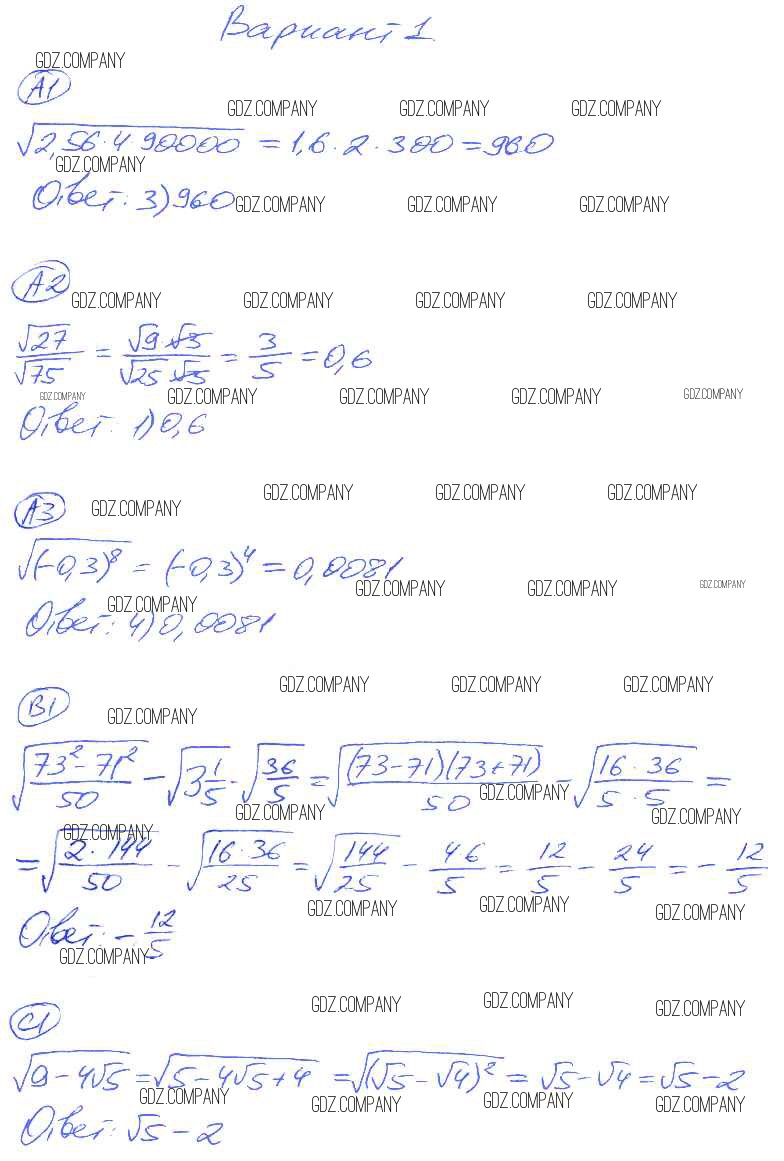 Вариант 1
GDZ.COMPANY
А1
GDZ.COMPANY GDZ.COMPANY GDZ.COMPANY
√(2,56·4 90000) = 1,6·2·300 = 960
GDZ.COMPANY
Ответ: 3) 960 GDZ.COMPANY GDZ.COMPANY GDZ.COMPANY
А2
GDZ.COMPANY GDZ.COMPANY GDZ.COMPANY GDZ.COMPANY
√27/√75 = √9·√3/√25·√3 = 3/5 = 0,6
GDZ.COMPANY GDZ.COMPANY GDZ.COMPANY GDZ.COMPANY GDZ.COMPANY
Ответ: 1) 0,6
А3 GDZ.COMPANY GDZ.COMPANY GDZ.COMPANY GDZ.COMPANY
√(-0,3)⁸ = (-0,3)⁴ = 0,0081
GDZ.COMPANY GDZ.COMPANY GDZ.COMPANY
GDZ.COMPANY
Ответ: 4) 0,0081
GDZ.COMPANY GDZ.COMPANY GDZ.COMPANY
В1 GDZ.COMPANY
√((73²-71²)/50) - √(3 1/5) · √(36/5) = √((73-71)(73+71)/50) - √((16·36)/(5·5)) =
GDZ.COMPANY GDZ.COMPANY GDZ.COMPANY
GDZ.COMPANY
= √((2·144)/50) - √((16·36)/25) = √(144/25) - 4·6/5 = 12/5 - 24/5 = - 12/5
GDZ.COMPANY GDZ.COMPANY GDZ.COMPANY
Ответ: - 12/5
GDZ.COMPANY
GDZ.COMPANY GDZ.COMPANY GDZ.COMPANY
С1
√(9-4√5) = √(5-4√5+4) = √((√5-√4)²) = √5-√4 = √5-2
GDZ.COMPANY GDZ.COMPANY GDZ.COMPANY GDZ.COMPANY
Ответ: √5-2